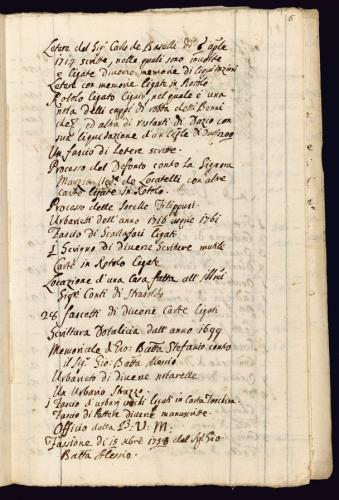 6
Letere del Sig.r Carlo de Baselli di
1714 scritte, nelle quali sono involte
e ligate diverse memorie di liquidazioni
Letere con memorie ligate in Rotolo
Rotolo ligato Cigaro, nel quale è una
nota delli cappi di robba delli Beni
ed altra di restanti di Dazio con
sua liquidazione d'un
Un fascio di Letere scritte.
Processo del Defonto contro la Signora
Marzia de Locatelli con altre
Carte ligate in Rotolo.
Processo delle Sorelle Filipputi.
Urbarietti dell'anno 1716 usque 1761
Fascio di Scartafaci ligati
1 Scrigno di diverse Scritture mutile
Carte in Rotolo ligate
Locazione d'una Casa fatta all' Ill.mi
Sig.ri Conti di Strasoldo
28 fascetti di diverse Carte ligati
Scrittura Dotalicia dell'anno 1699
Memoriale d'Gio: Batta Stefanio contro
il Sig.r Gio: Batta Alessio
Urbarieto di diverse notarelle
Un Urbario Strazzo
1 Fascio d'urbari ligati in Carta Torchina
Fascio di Letere diverse manuscritte.
Officio della B: V: M:
Fassione di 15 Xbre 1753 del Sig.r Gio:
Batta Alessio.